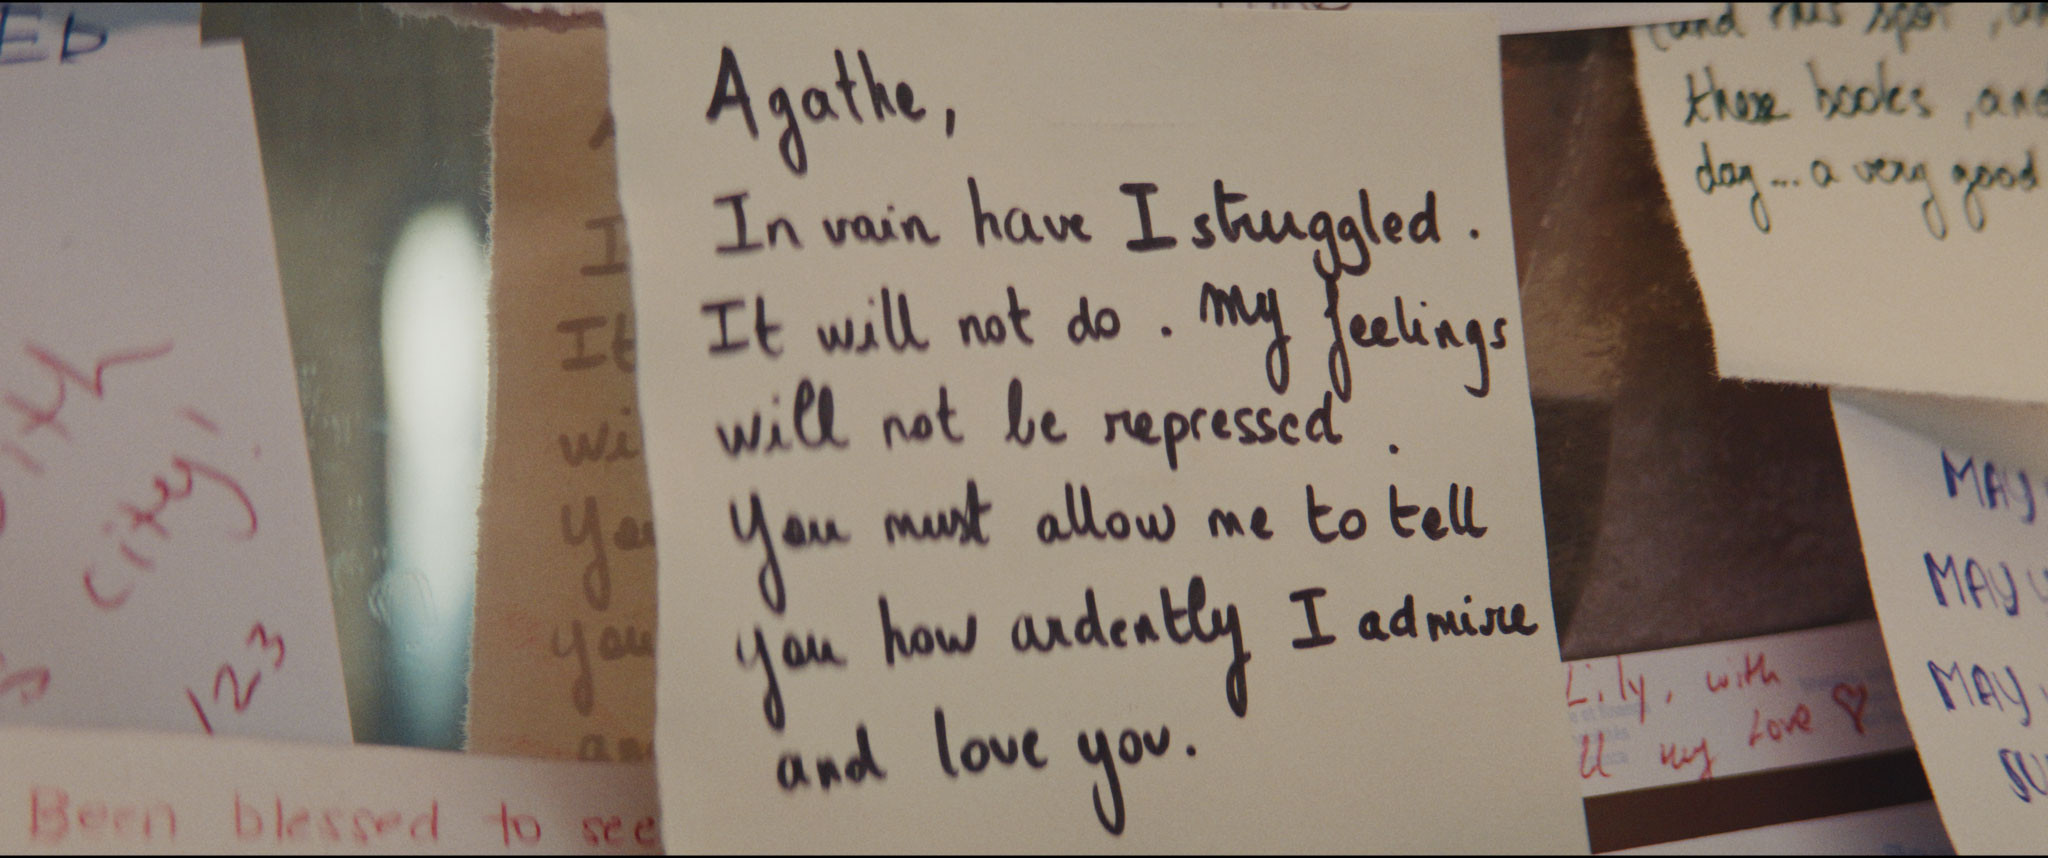 Agathe,
In vain have I struggled.
It will not do. My feelings
will not be repressed.
You must allow me to tell
you how ardently I admire
and love you.
(and this spot,
these books, and
day... a very good
city!
123
Been blessed to see
Lily, with
my Love ♡
MAY
MAY
MAY